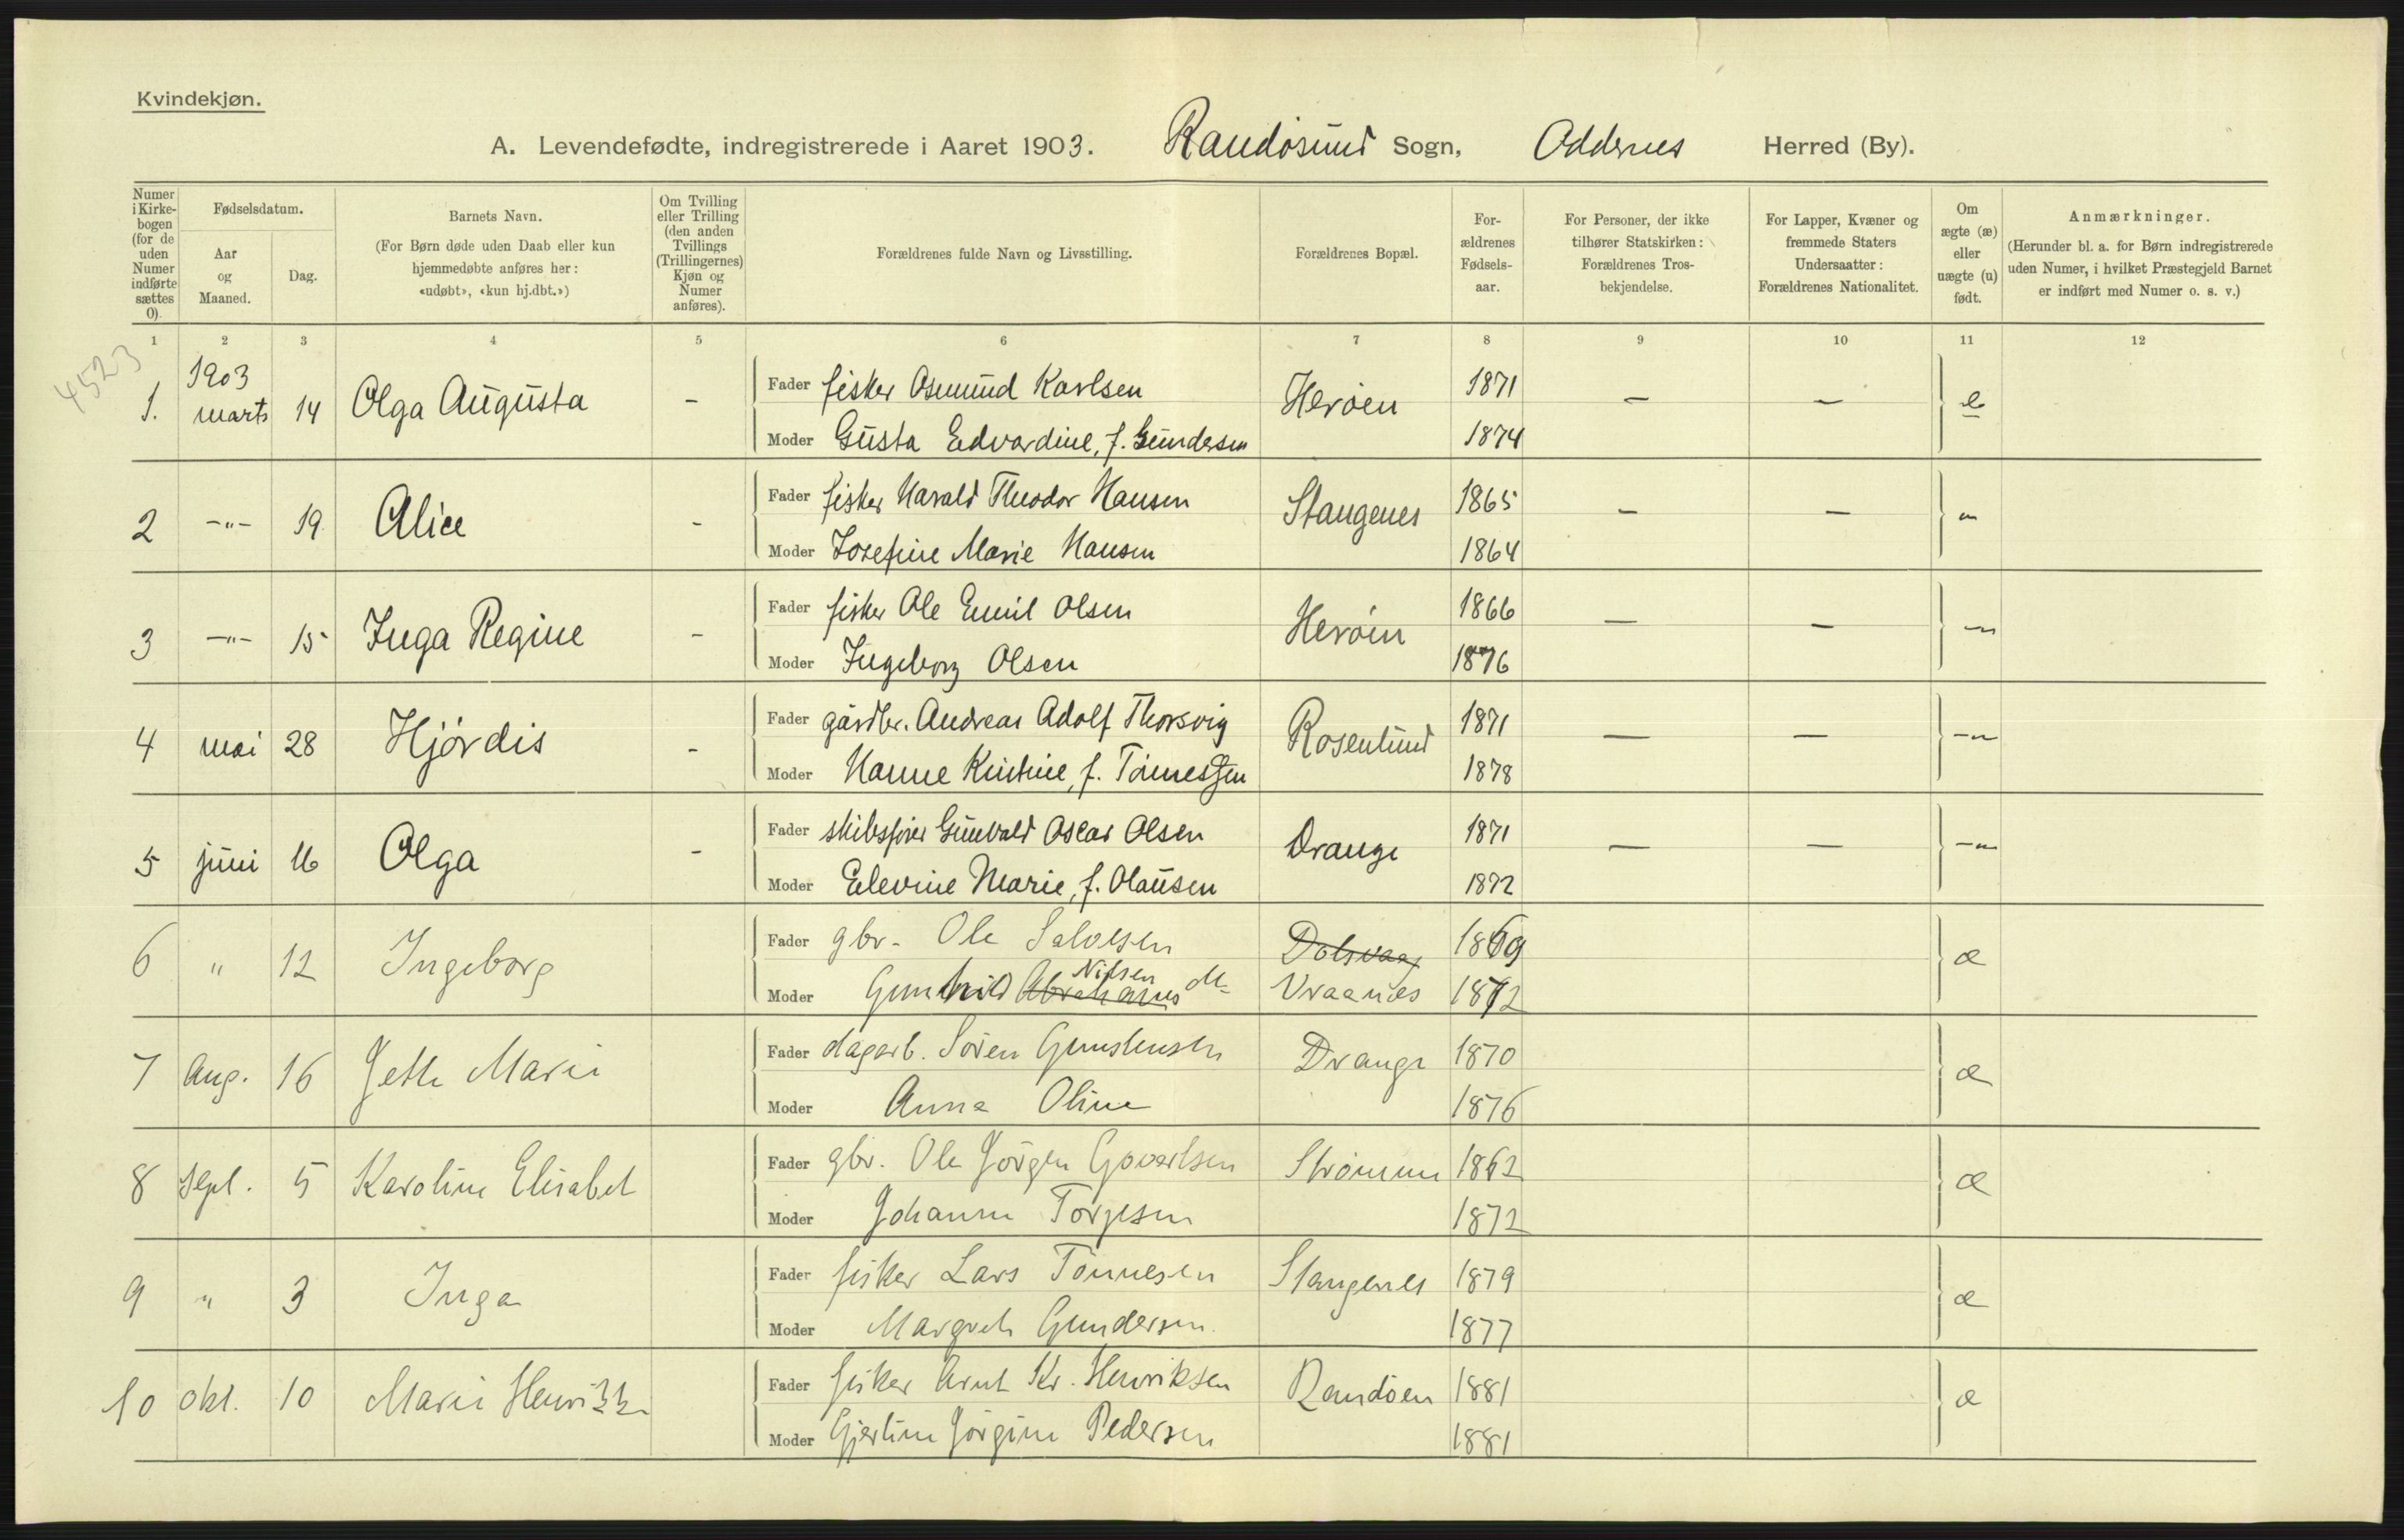 Kvindekjøn.
A. Levendefødte, indregistrerede i Aaret 1903. Randøsund Sogn, Oddernes Herred (By).
Numer i Kirkebogen (for de uden Numer indførte sættes 0).
Fødselsdatum.
Aar og Maaned.
Dag.
Barnets Navn.
(For Børn døde uden Daab eller kun hjemmedøbte anføres her: «udøbt», «kun hj.dbt.»)
Om Tvilling eller Trilling (den anden Tvillings (Trillingernes) Kjøn og Numer anføres).
Forældrenes fulde Navn og Livsstilling.
Forældrenes Bopæl.
For-
ældrenes
Fødsels-
aar.
For Personer, der ikke
tilhører Statskirken:
Forældrenes Tros-
bekjendelse.
For Lapper, Kvæner og
fremmede Staters
Undersaatter:
Forældrenes Nationalitet.
Om
ægte (æ)
eller
uægte (u)
født.
Anmærkninger.
(Herunder bl. a. for Børn indregistrerede
uden Numer, i hvilket Præstegjeld Barnet
er indført med Numer o. s. v.)
1 2 3 4 5 6 7 8 9 10 11 12
4523
1. 1903 marts 14 Olga Augusta - Fader fisker Osmund Karlsen Herøen 1871 - - æ
Moder Gusta Edvardine, f. Gundersen 1874
2 -"- 19 Alice - Fader fisker Harald Theodor Hansen Stangenes 1865 - - "
Moder Josefine Marie Hansen 1864
3 -"- 15 Inga Regine - Fader fisker Ole Emil Olsen Herøen 1866 - - -"
Moder Ingeborg Olsen 1876
4 mai 28 Hjørdis - Fader gårdbr. Andreas Adolf Thorsvig Rosenlund 1871 - - -"-
Moder Hanne Kristine, f. Tønnessen 1878
5 juni 16 Olga - Fader skibsfører Gunvald Oscar Olsen Drange 1871 - - -"-
Moder Elevine Marie, f. Olausen 1872
6 " 12 Ingeborg Fader gbr. Ole Salvesen Dolsvaag 1869 æ
Moder Gunhild Abrahams Nilsen Vraanes 1872
7 Aug. 16 Jette Marie Fader dagarb. Søren Gunstensen Drange 1870 æ
Moder Anna Oline 1876
8 Sept. 5 Karoline Elisabet Fader gbr. Ole Jørgen Govertsen Strømme 1862 æ
Moder Johanne Torjesen 1872
9 " 3 Inga Fader fisker Lars Tønnesen Stangenes 1879 æ
Moder Margrete Gundersen 1877
10 Okt. 10 Marie Henrikke Fader fisker Arnt Kr. Henriksen Randøen 1881 æ
Moder Gjertine Jørgine Pedersen 1881